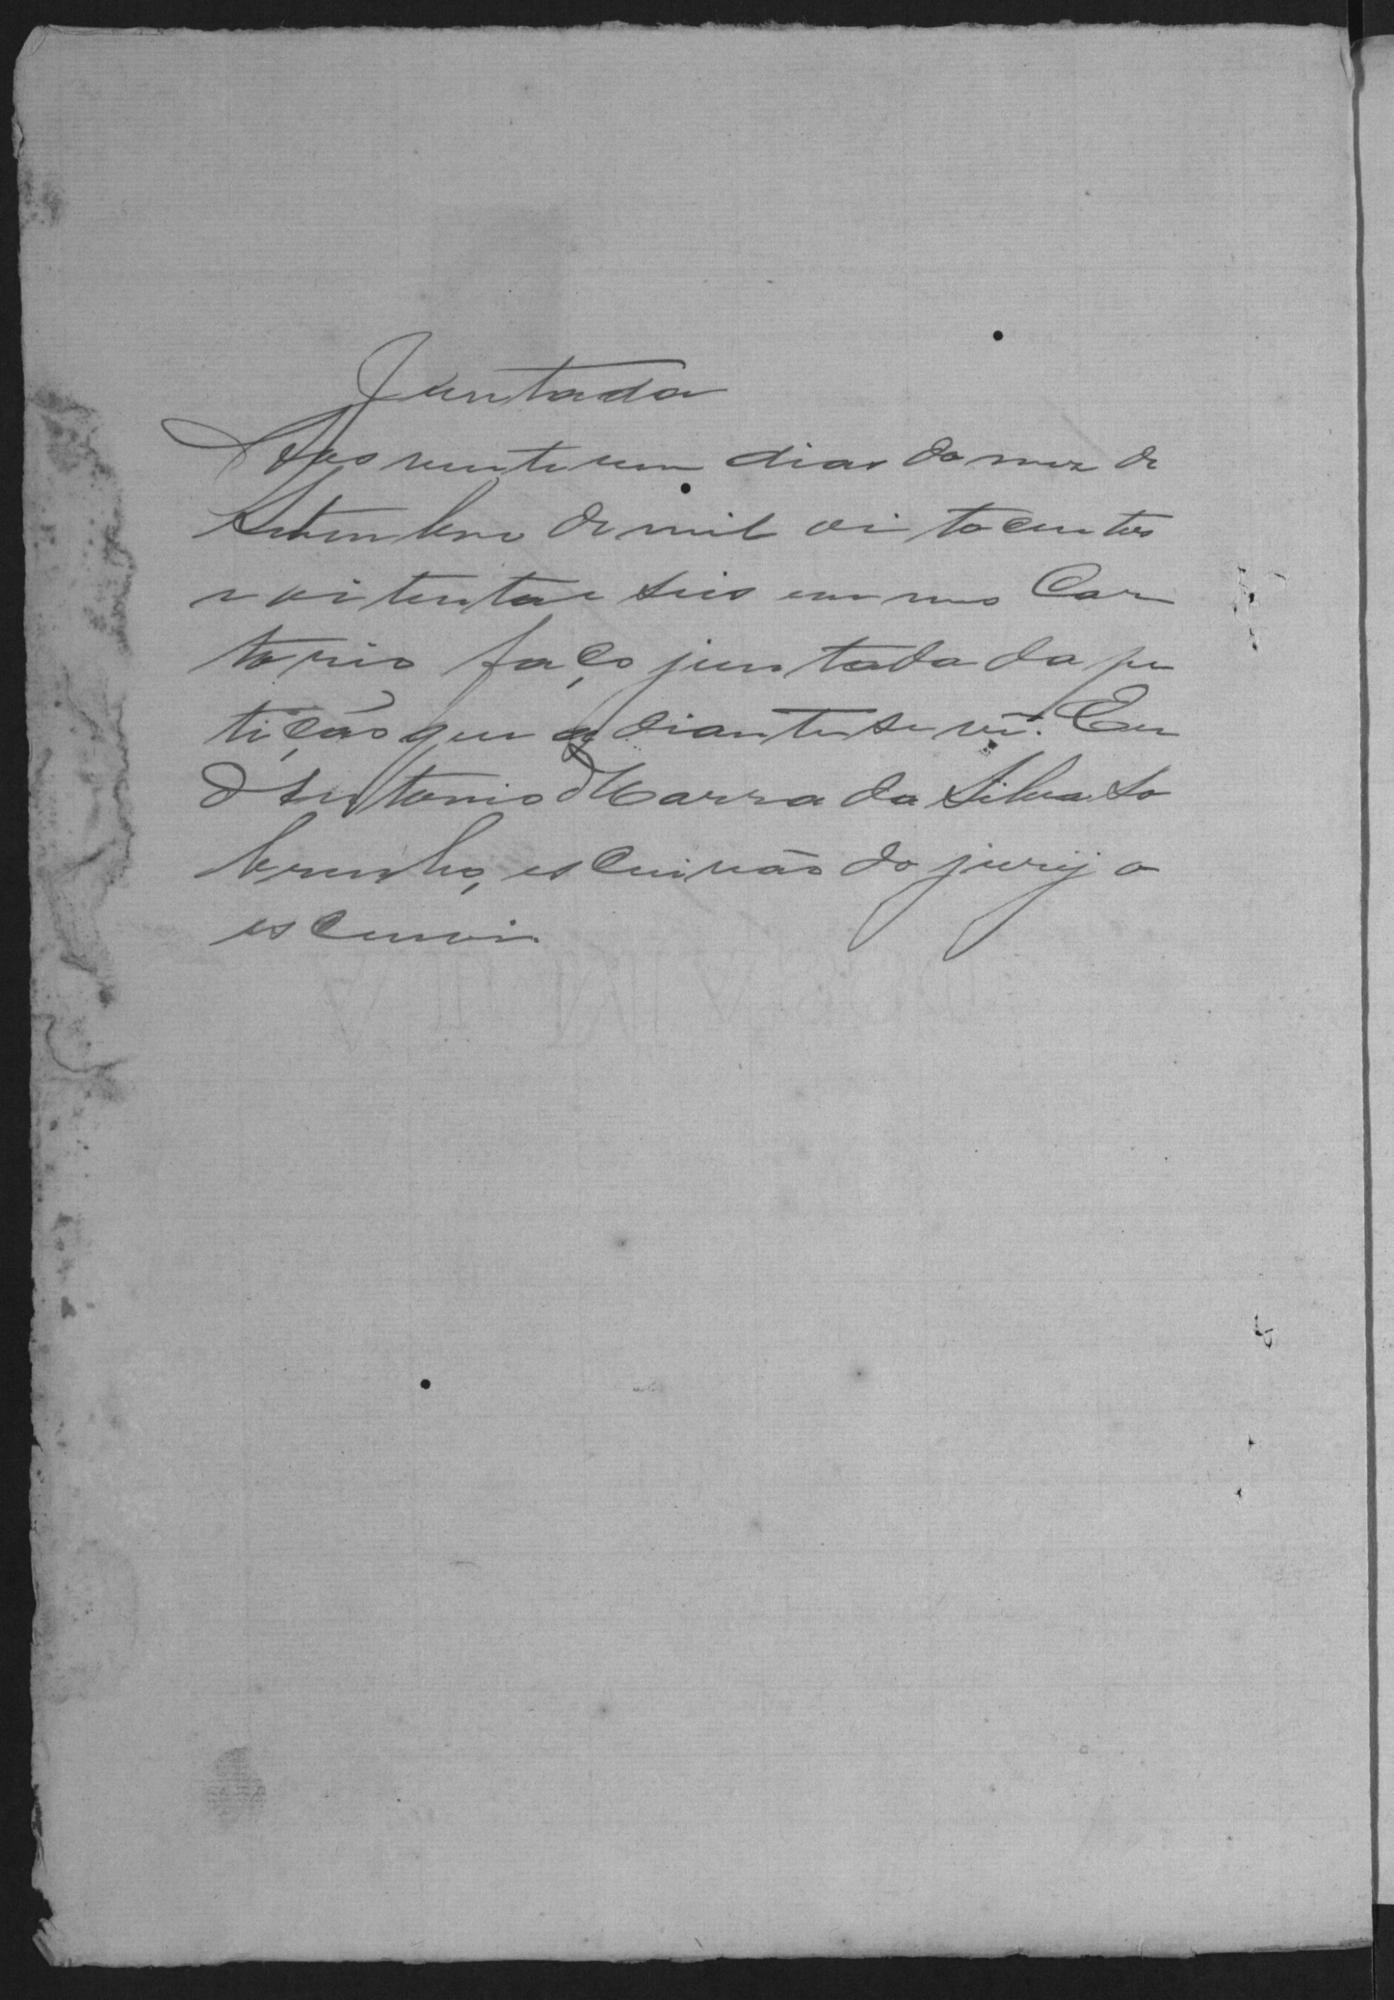 Juntada
Aos vinte um dias do mez de
Setembro de mil oi tocentos
e oitenta e seis em meo Car
torio faço juntada da pe
tição que a diante se vê. Eu
Antonio Marra da Silva So
brinho, escrivão do jury o
escrevi